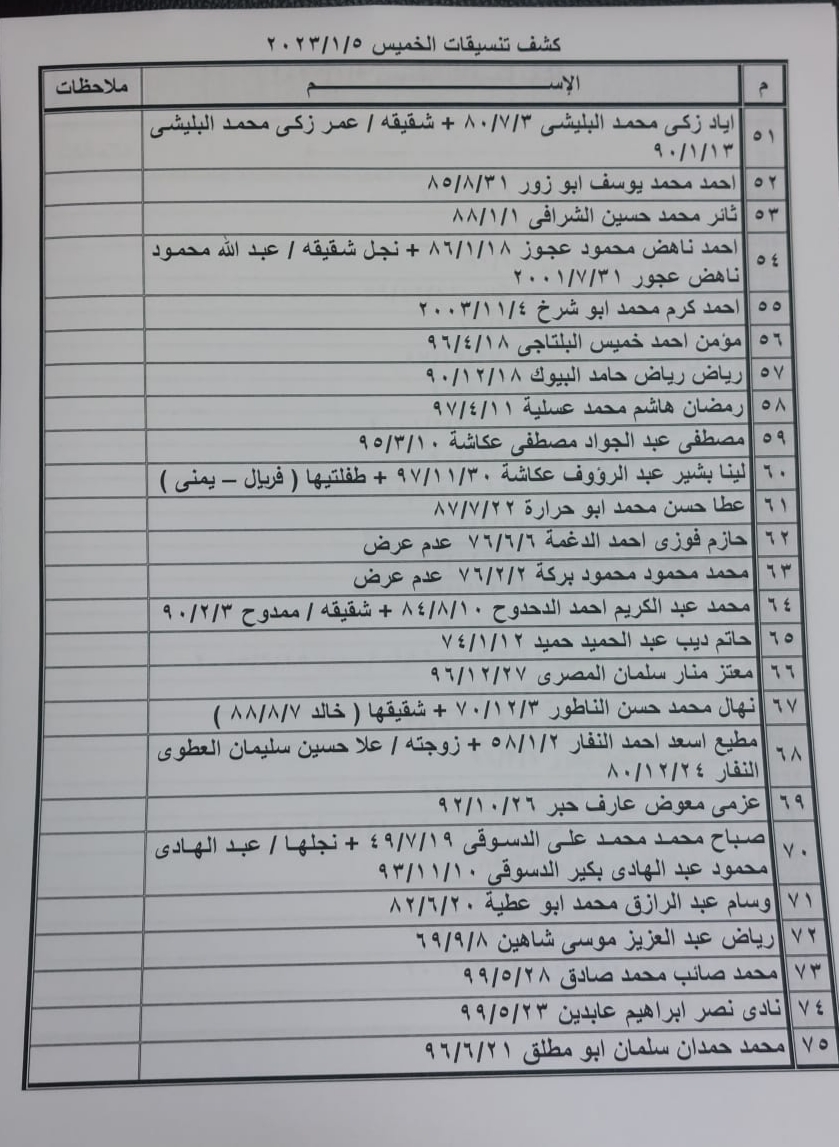 كشف تنسيقات الخميس ٢٠٢٣/١/٥
م الإســـــــــم ملاحظات
٥١ اياد زكى محمد البليشى ٨٠/٧/٣ + شقيقه / عمر زكى محمد البليشى
٩٠/١/١٣
٥٢ احمد محمد يوسف ابو زور ٨٥/٨/٣١
٥٣ ثائر محمد حسين الشرافى ٨٨/١/١
٥٤ احمد ناهض محمود عجوز ٨٦/١/١٨ + نجل شقيقه / عبد الله محمود
ناهض عجور ٢٠٠١/٧/٣١
٥٥ احمد كرم محمد ابو شرخ ٢٠٠٣/١١/٤
٥٦ مؤمن احمد خميس البلتاجى ٩٦/٤/١٨
٥٧ رياض رياض حامد البيوك ٩٠/١٢/١٨
٥٨ رمضان هاشم محمد عسلية ٩٧/٤/١١
٥٩ مصطفى عبد الجواد مصطفى عكاشة ٩٥/٣/١٠
٦٠ لينا بشير عبد الرؤوف عكاشة ٩٧/١١/٣٠ + طفلتيها ( فريال – يمنى )
٦١ عطا حسن محمد ابو حرارة ٨٧/٧/٢٢
٦٢ حازم فوزى احمد الدغمة ٧٦/٦/٦ عدم عرض
٦٣ محمد محمود محمود بركة ٧٦/٢/٢ عدم عرض
٦٤ محمد عبد الكريم احمد الدحدوح ٨٤/٨/١٠ + شقيقه / ممدوح ٩٠/٢/٣
٦٥ حاتم ديب عبد الحميد حميد ٧٤/١/١٢
٦٦ معتز منار سلمان المصرى ٩٦/١٢/٢٧
٦٧ نهال محمد حسن الناطور ٧٠/١٢/٣ + شقيقها ( خالد ٨٨/٨/٧ )
٦٨ مطيع اسعد احمد النفار ٥٨/١/٢ + زوجته / علا حسين سليمان العطوى
النفار ٨٠/١٢/٢٤
٦٩ عزمى معوض عارف حبر ٩٢/١٠/٢٦
٧٠ صباح محمد محمد على الدسوقى ٤٩/٧/١٩ + نجلها / عبد الهادى
محمود عبد الهادى بكير الدسوقى ٩٣/١١/١٠
٧١ وسام عبد الرازق محمد ابو عطية ٨٢/٦/٢٠
٧٢ رياض عبد العزيز موسى شاهين ٦٩/٩/٨
٧٣ محمد صائب محمد صادق ٩٩/٥/٢٨
٧٤ نادى نصر ابراهيم عابدين ٩٩/٥/٢٣
٧٥ محمد حمدان سلمان ابو مطلق ٩٦/٦/٢١